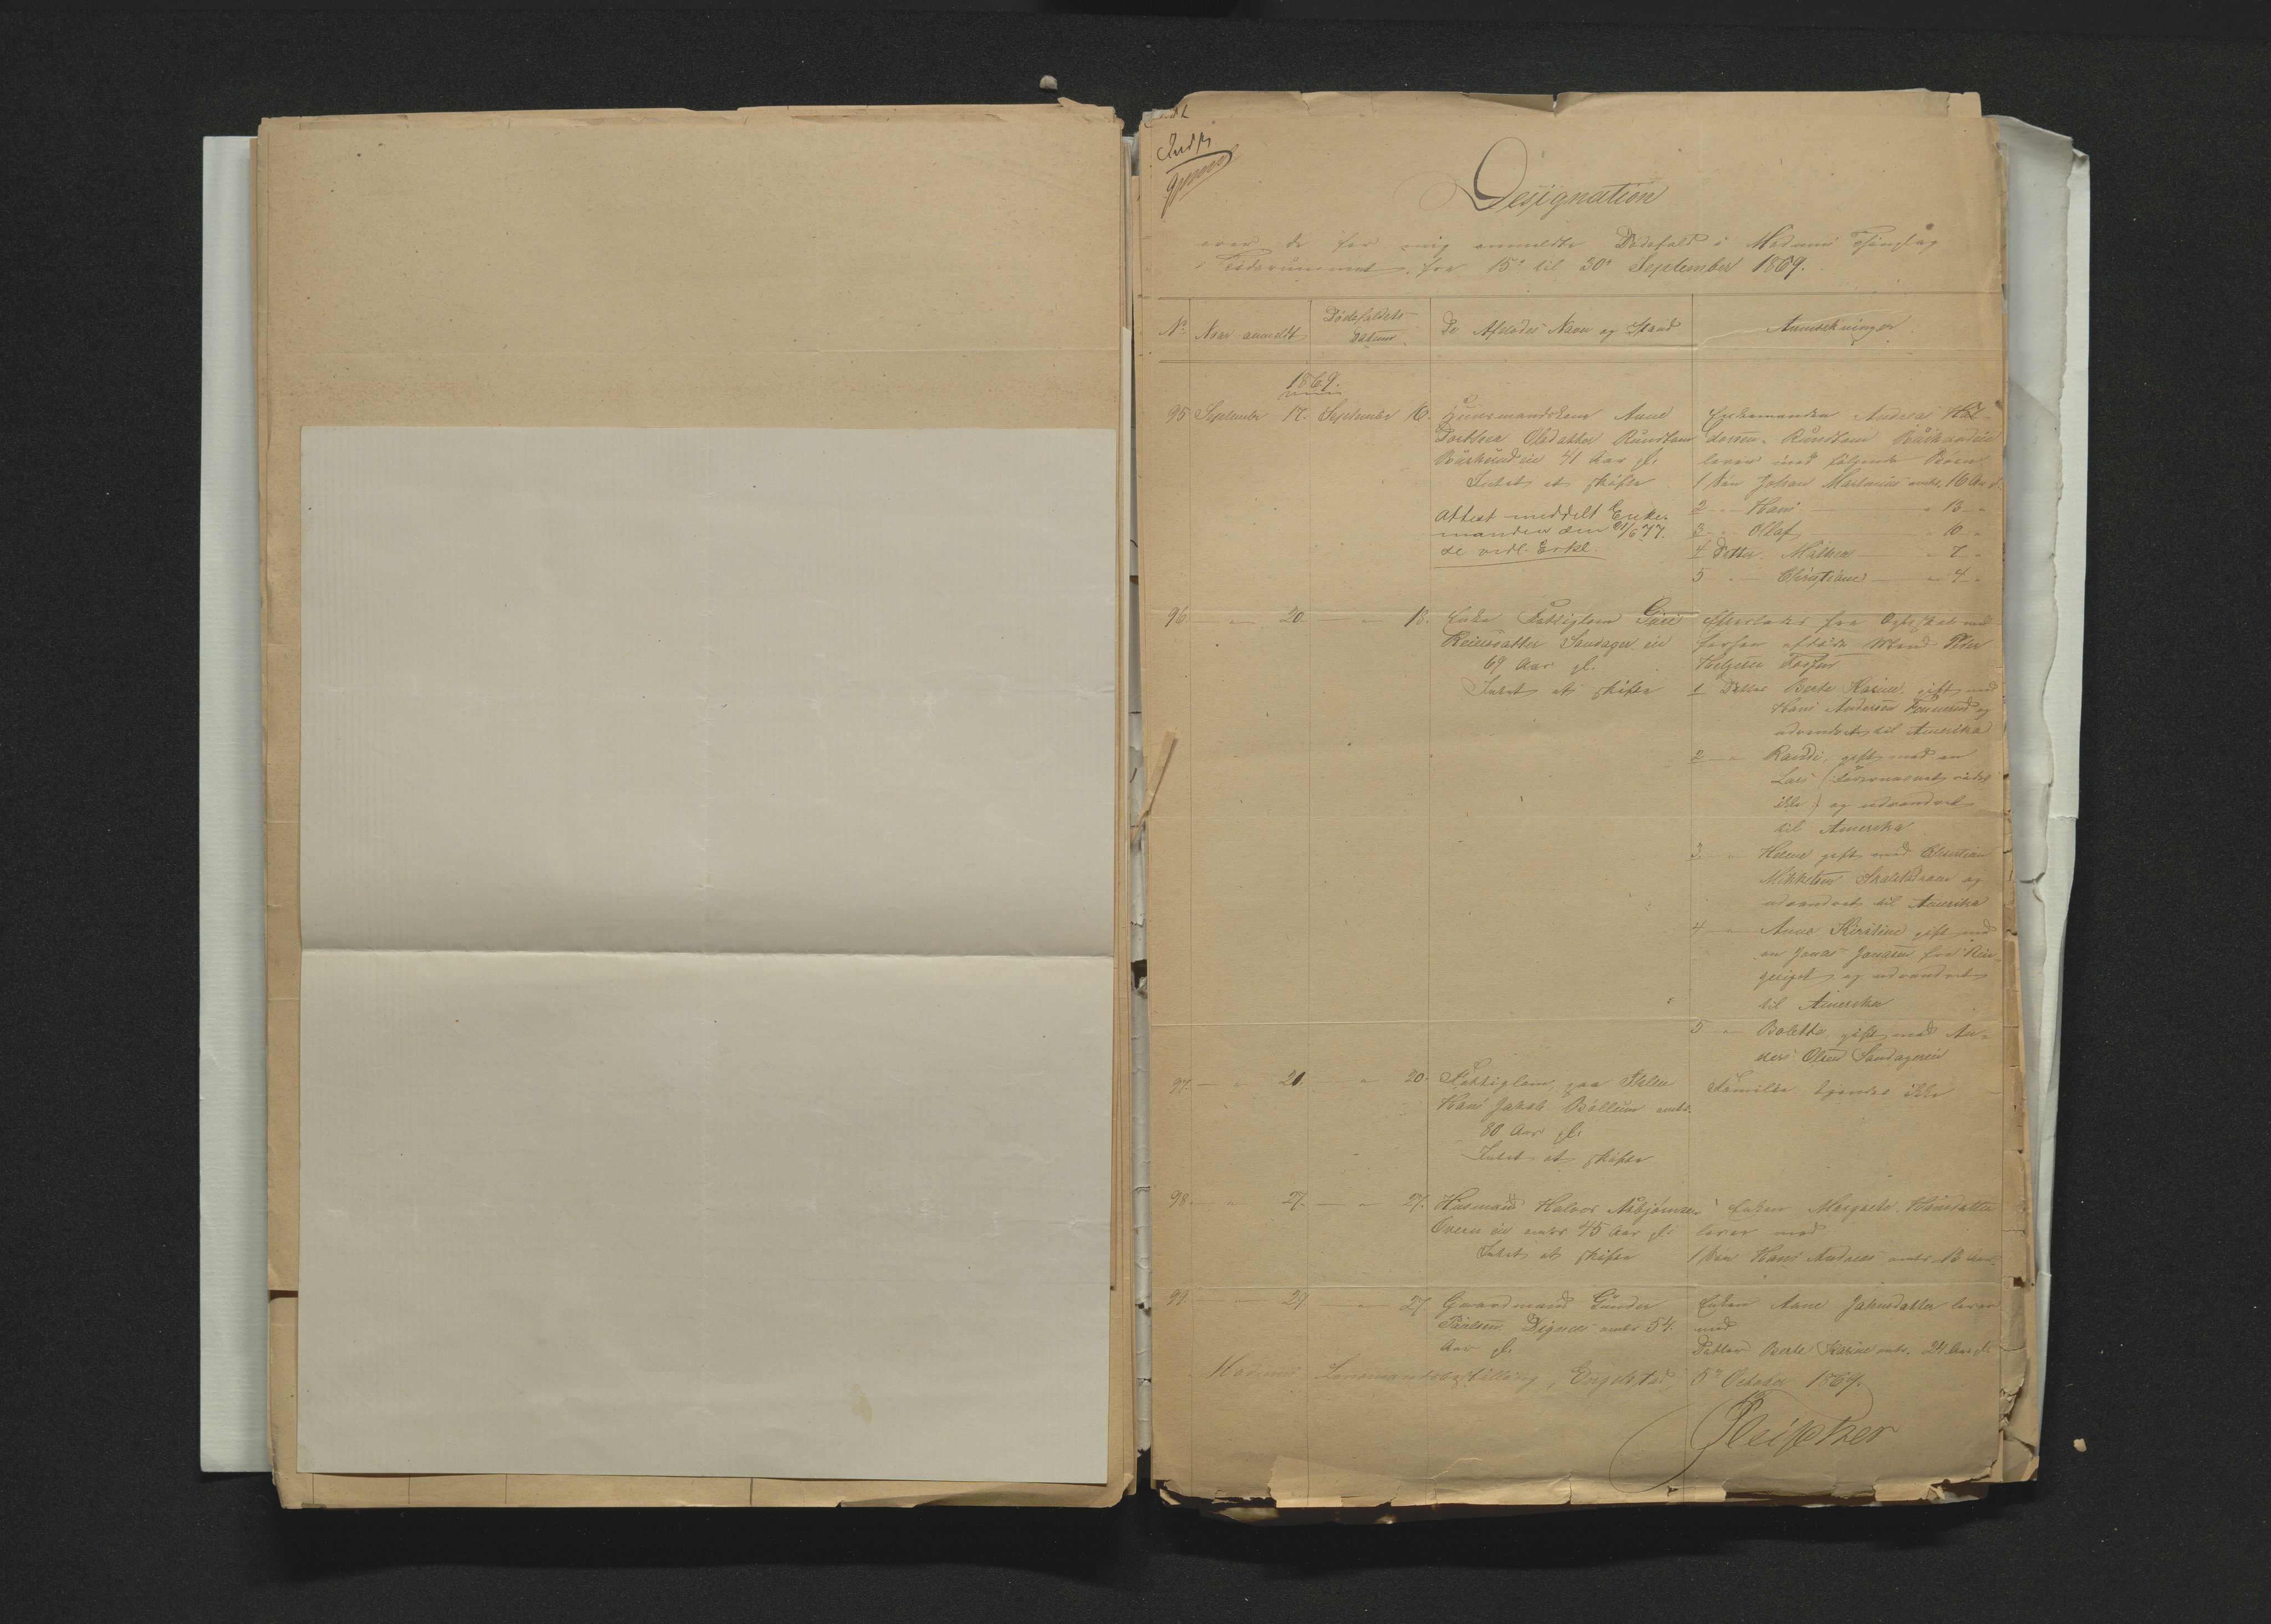 Designation
over de for mig anmeldte Dødsfald i Modums Thinglag
i Tidsrummet fra 15de til 30te September 1869.
No Naar anmeldt Dødsfaldets Datum De Afdødes Navn og Stand Anmærkninger
1869.
95 September 17. September 16.
Huusmandskone Anne
Olsdatter Rundtom
41 Aar gl.
Intet at skifte
Attest meddelt Enke-
manden den 21/6 77.
Enkemanden Andreas Hal-
Rundtom
lever med følgende Børn
1 Søn Johan Martinius omtr. 16 Aar
2 " Hans " 13 "
3 " Ollaf " 10 "
4 Datter Mathea " 7 "
5 " Christiane " 4 "
96. " 20. " 18.
Enke Fattiglem Guri
Reiersdatter Sandager eie
69 Aar gl.
Intet at skifte
Efterlader fra Ægteskab med
forhen afdøde Mand Peder
Helgesen
1 Datter Berte Karine, gift med
Hans Andersen og
udvandret til Amerika
2 " Randi, gift med en
Lars (Farsnavnet vides
ikke) og udvandret
til Amerika
3. " Helene gift med Christian
Mikkelsen og
udvandret til Amerika
4 " Anne Kirstine gift med
en Jonas Jonasen fra Rin-
geriget og udvandret
til Amerika
5 " Bolette, gift med An-
ders Olsen Sandagereie
97. " 21. " 20.
Fattiglem paa
Hans Jakob Bøllum omtr.
80 Aar gl.
Intet at skifte
Familie kjendes ikke
98. " 27. " 27.
Husmand Halvor Asbjørnsen
Overn eie omtr 45 Aar gl.
Intet at skifte
Enken Margrete Hansdatter
lever med
1 Søn Hans Andreas omtr. 13 Aar
99. " 29 " 27.
Gaardmand Gunder
Paulsen Digness omtr 54.
Aar gl.
Enken Anne Jakobsdatter lever
med
Datter Berte Karine omtr. 24 Aar gl.
Modums Lensmandsbestilling, Engelstad, 5te October 1869.